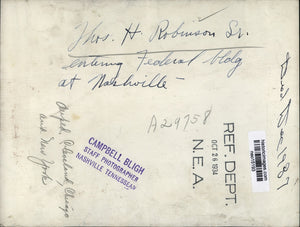 Thos. H. Robinson Sr.
entering Federal bldg
at Nashville
A29758
CAMPBELL BLIGH
STAFF PHOTOGRAPHER
NASHVILLE TENNESSEAN
REF. DEPT.
OCT 26 1934
N. E. A.
Cleveland Chicago
and New York